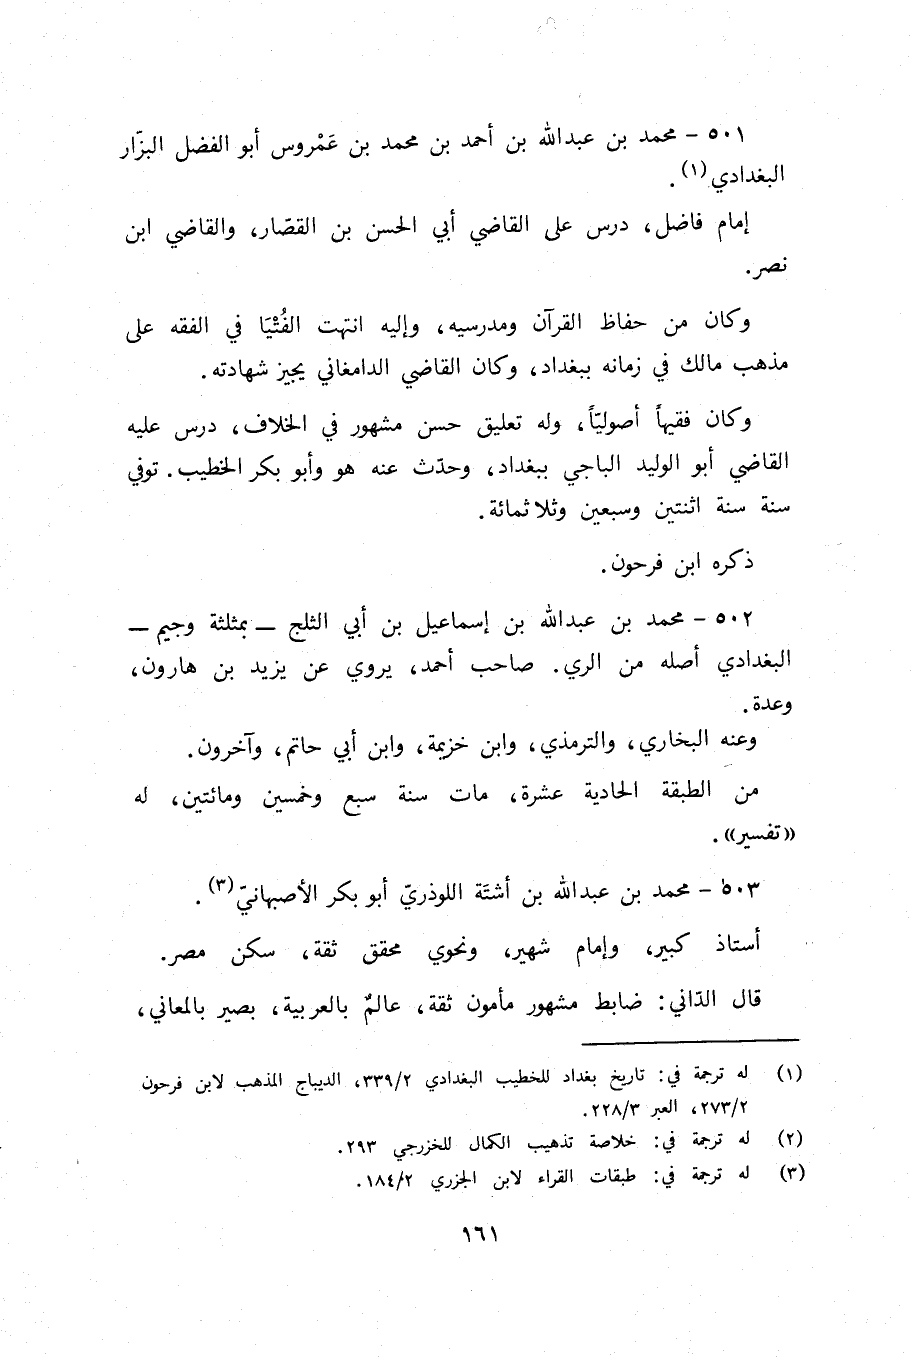 ٥٠١ - محمد بن عبدالله بن أحمد بن محمد بن عَمْروس أبو الفضل البزّار
البغدادي(١).
إمام فاضل، درس على القاضي أبي الحسن بن القصّار، والقاضي ابن
نصر.
وكان من حفاظ القرآن ومدرسيه، وإليه انتهت الفُتْيَا في الفقه على
مذهب مالك في زمانه ببغداد، وكان القاضي الدامغاني يجيز شهادته.
وكان فقيهاً أصوليّاً، وله تعليق حسن مشهور في الخلاف، درس عليه
القاضي أبو الوليد الباجي ببغداد، وحدّث عنه هو وأبو بكر الخطيب. توفي
سنة سنة اثنتين وسبعين وثلاثمائة.
ذكره ابن فرحون.
٥٠٢ - محمد بن عبدالله بن إسماعيل بن أبي الثلج ــ بمثلثة وجيم ــ
البغدادي أصله من الري. صاحب أحمد، يروي عن يزيد بن هارون،
وعدة.
وعنه البخاري، والترمذي، وابن خزيمة، وابن أبي حاتم، وآخرون.
من الطبقة الحادية عشرة، مات سنة سبع وخمسين ومائتين، له
«تفسير».
٥٠٣ - محمد بن عبدالله بن أشتَة اللوذريّ أبو بكر الأصبهانيّ(٣).
أستاذ كبير، وإمام شهير، ونحوي محقق ثقة، سكن مصر.
قال الدّاني: ضابط مشهور مأمون ثقة، عالمٌ بالعربية، بصير بالمعاني،
(١) له ترجمة في: تاريخ بغداد للخطيب البغدادي ٣٣٩/٢، الديباج المذهب لابن فرحون
٢٧٣/٢، العبر ٢٢٨/٣.
(٢) له ترجمة في: خلاصة تذهيب الكمال للخزرجي ٢٩٣.
(٣) له ترجمة في: طبقات القراء لابن الجزري ١٨٤/٢.
١٦١